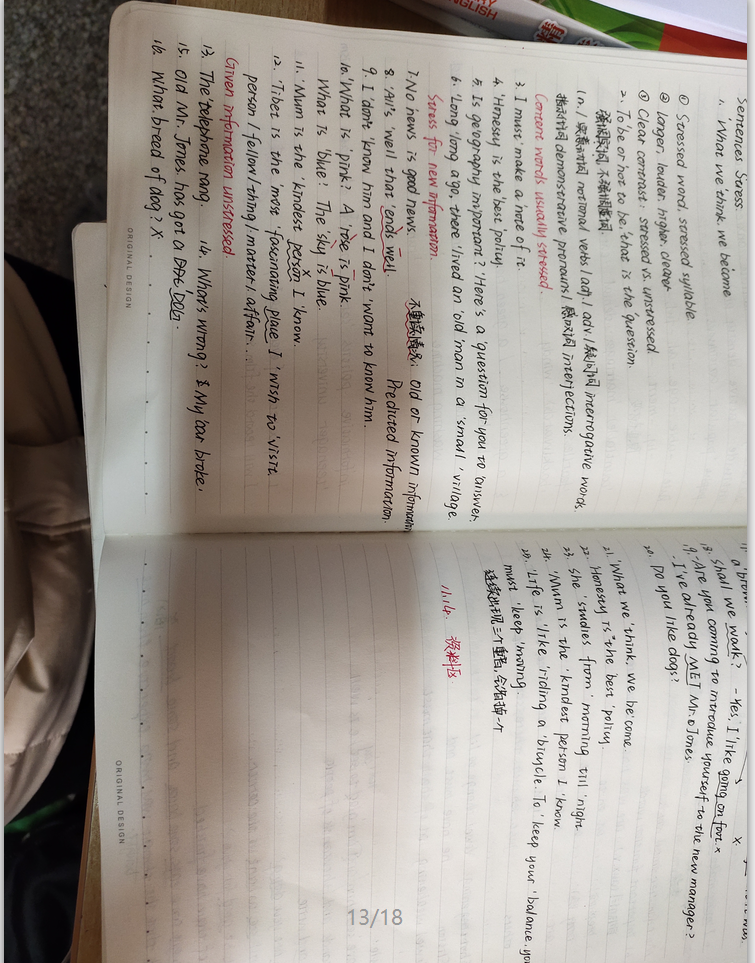 ENGLISH
Sentences Stress.
1. What we 'think, we become
① Stressed word, stressed syllable.
② Longer, louder, higher, clearer
③ Clear contrast: stressed vs. unstressed
2. To be or not to be, 'that is the 'question.
强调实词, 不强调虚词.
(n. / 实意动词 notional verbs / adj. / adv. / 疑问词 interrogative words.
指示代词 demonstrative pronouns / 感叹词 interjections.
Content words usually stressed.
3. I must 'make a 'note of it.
4. 'Honesty is the 'best 'policy.
5. Is geography important? 'Here's a 'question for you to answer.
6. 'Long 'long ago, there 'lived an 'old 'man in a 'small 'village.
Stress for new information.
7. No news is good news.
不重读情况: Old or known information
8. 'All's 'well that 'ends well.
Predicted information.
9. I don't 'know him and I don't 'want to know him.
10. 'What is 'pink? A 'rose is pink.
What is 'blue? The 'sky is blue.
11. 'Mum is the 'kindest person I 'know.
12. 'Tibet is the 'most 'fascinating place I 'wish to 'visit.
person / fellow / thing / matter / affair...
Given information unstressed
13. The 'telephone rang.
14. What's wrong? My 'car broke.
15. Old Mr. Jones has got a 'DOG.
16. What breed of dog? x
ORIGINAL DESIGN
18. Shall we walk? - Yes, I like going on foot. x
19. Are you coming to introduce yourself to the new manager?
- I've already MET Mr. Jones.
20. Do you like dogs?
21. 'What we 'think, we be'come.
22. 'Honesty is the best 'policy.
23. She 'studies from 'morning till 'night
24. 'Mum is the 'kindest person I 'know.
25. 'Life is 'like 'riding a 'bicycle. To 'keep your 'balance, you
must 'keep 'moving.
连续出现三个重音, 会省掉一个
11.14. 资料区
ORIGINAL DESIGN
13/18